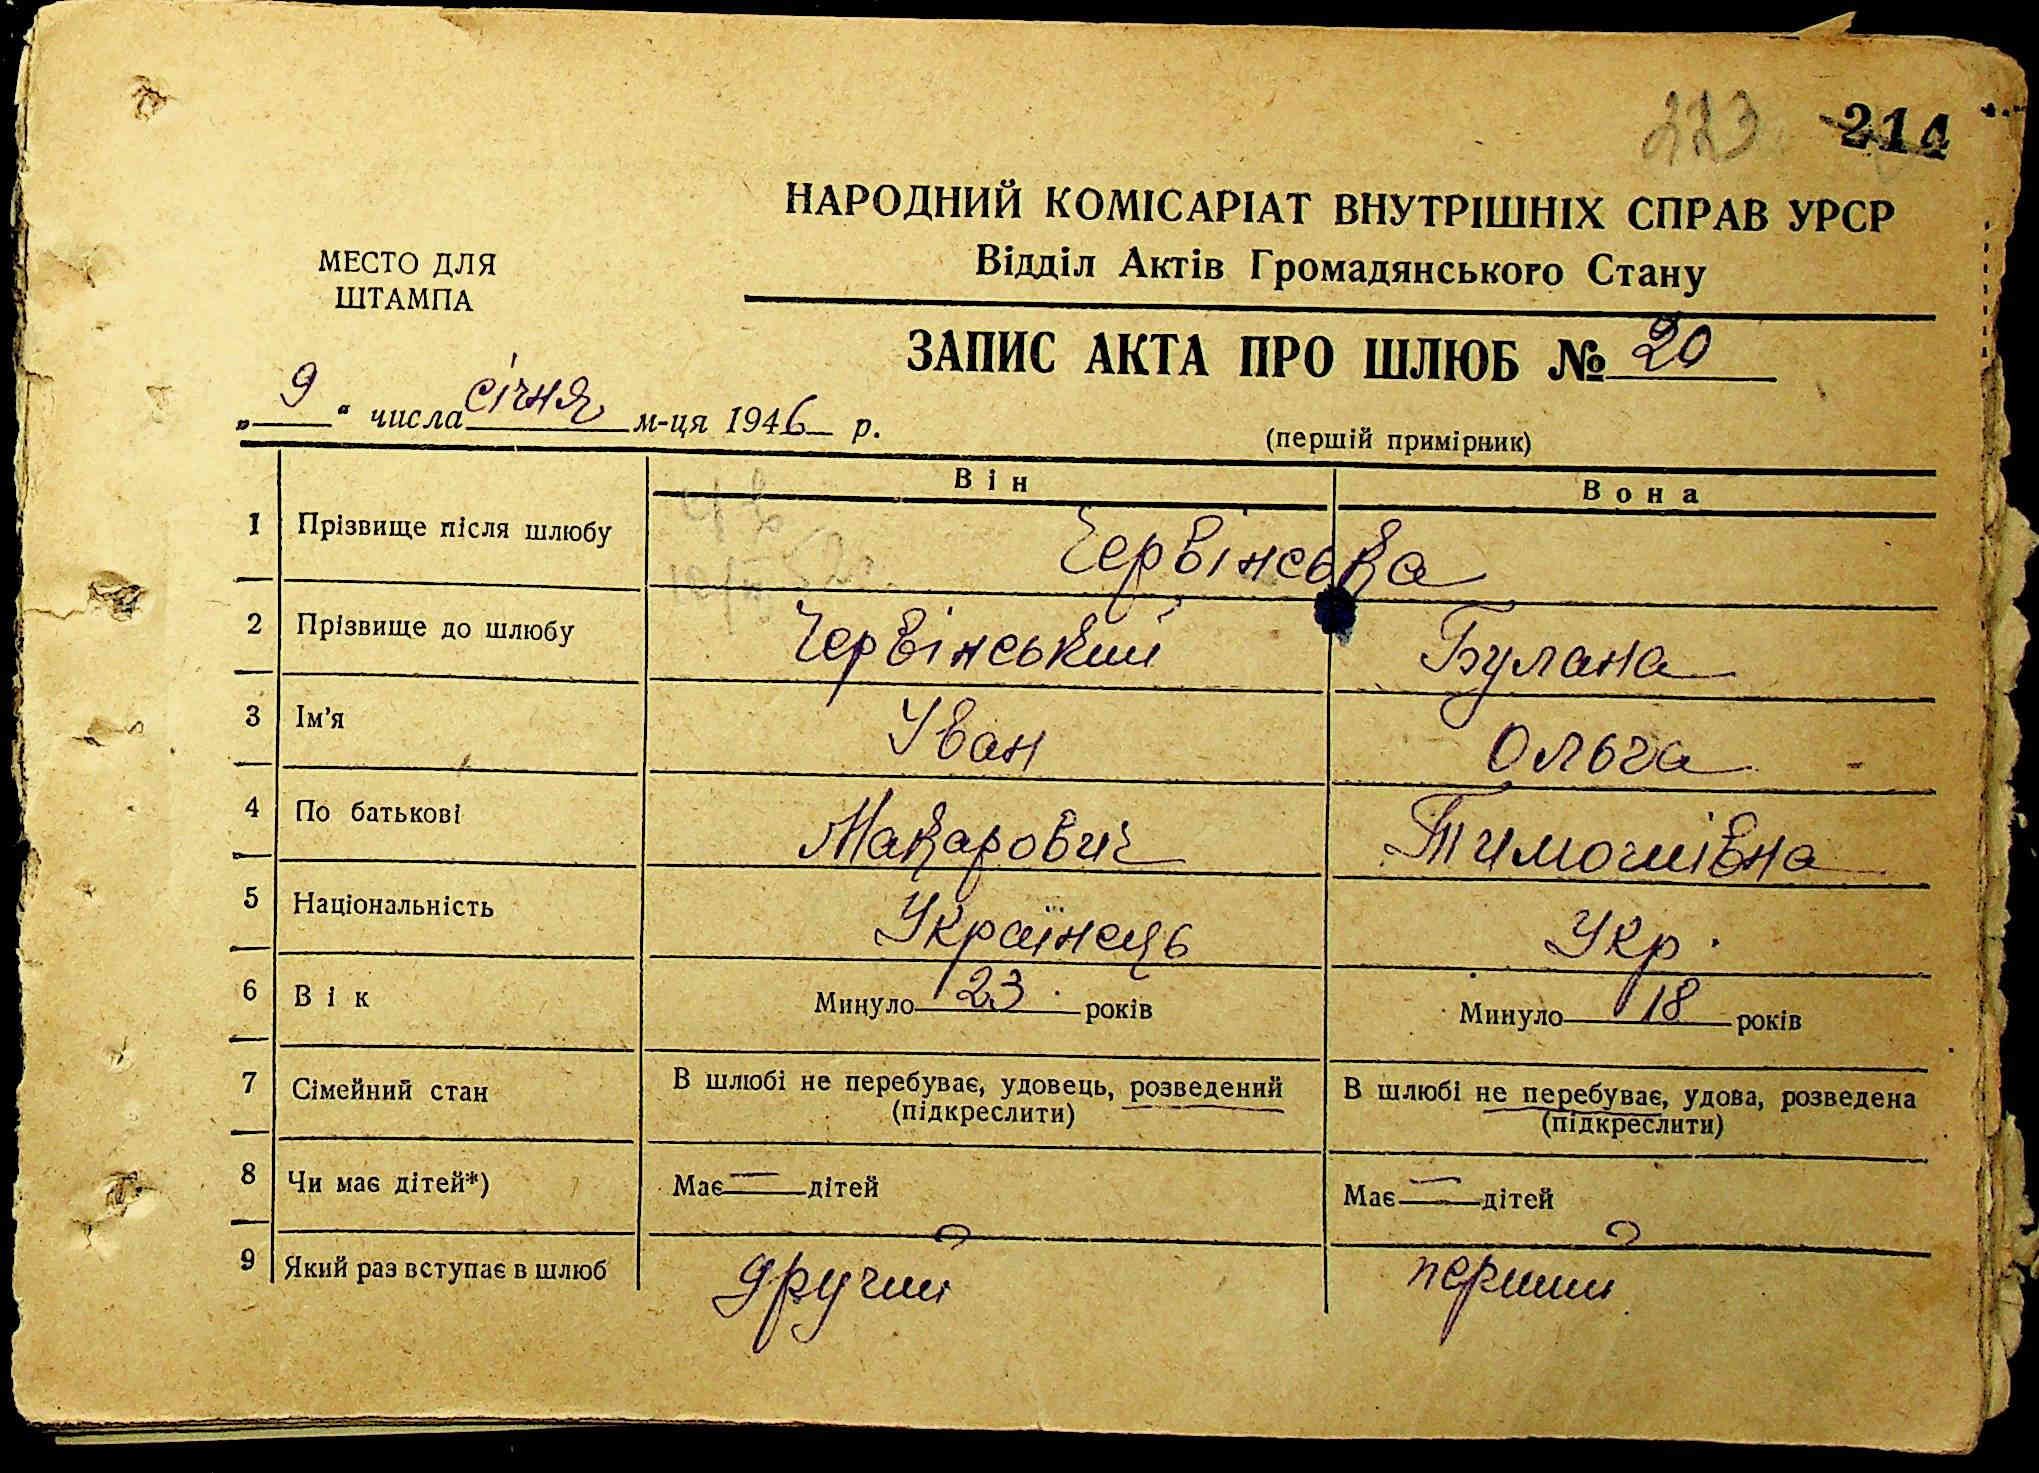 223 214
НАРОДНИЙ КОМІСАРІАТ ВНУТРІШНІХ СПРАВ УРСР
Відділ Актів Громадянського Стану
МЕСТО ДЛЯ
ШТАМПА
ЗАПИС АКТА ПРО ШЛЮБ № 20
„ 9 “ числа січня м-ця 1946 р.
(першій примірник)
Він Вона
1 Прізвище після шлюбу Червінська
2 Прізвище до шлюбу Червінський Булана
3 Ім'я Іван Ольга
4 По батькові Макарович Тимошівна
5 Національність Українець Укр.
6 Вік Минуло 23 років Минуло 18 років
7 Сімейний стан В шлюбі не перебуває, удовець, розведений В шлюбі не перебуває, удова, розведена
(підкреслити) (підкреслити)
8 Чи має дітей*) Має — дітей Має — дітей
9 Який раз вступає в шлюб другий перший